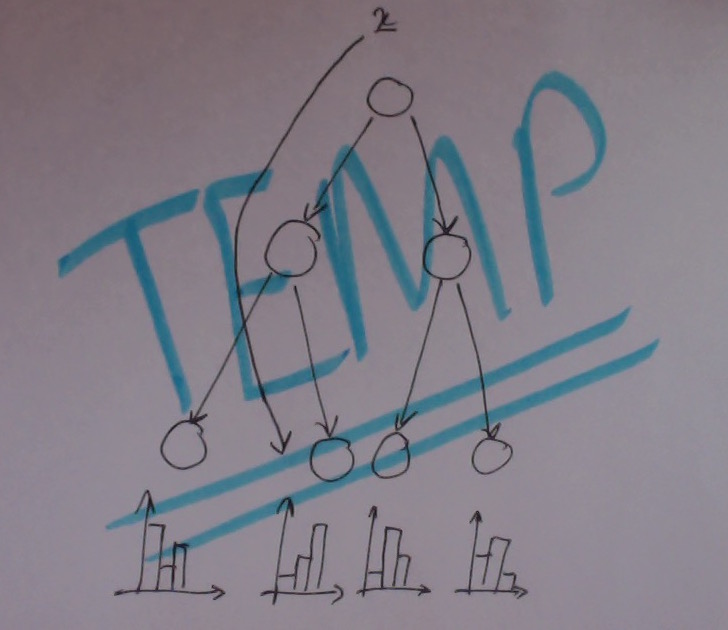 x
TEMP